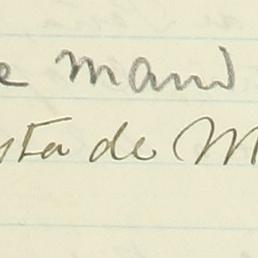 e Maud
sta de M